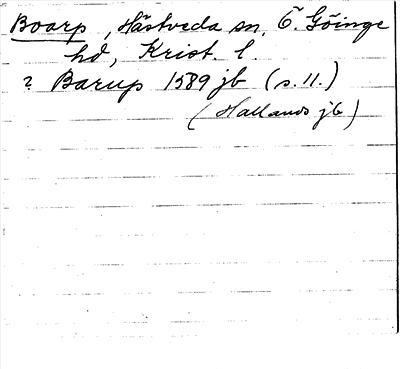 Boarp, Hästveda sn, Ö. Göinge
hd, Krist. l.
? Barup 1589 jb (s. 11.)
(Hallands jb)